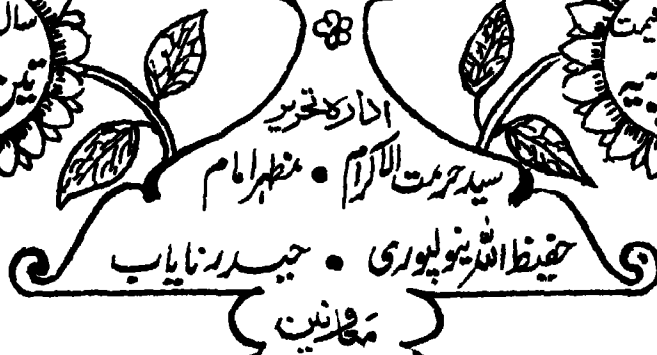 سال
قیمت
ادارہ تحریر
سید حرمت الاکرام • مظہر امام
حفیظ اللہ نیولپوری • حیدر نایاب
معاونین